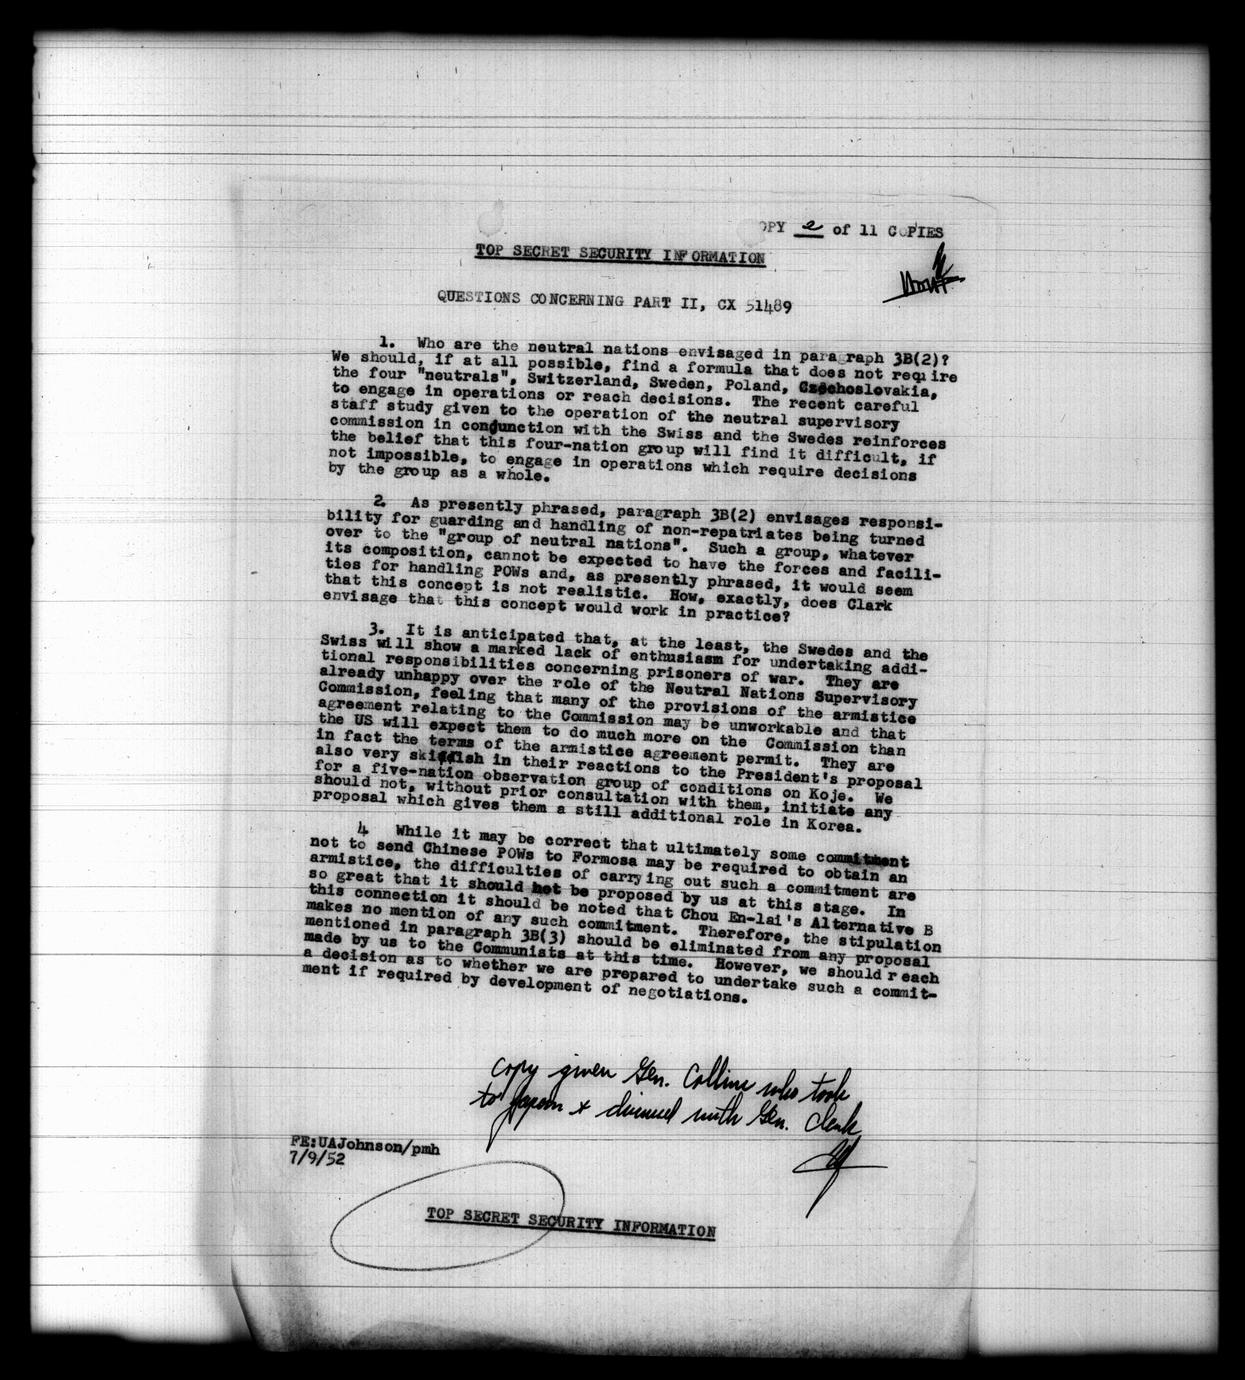 OPY 2 of 11 COPIES
TOP SECRET SECURITY INFORMATION
QUESTIONS CONCERNING PART II, CX 51489
1. Who are the neutral nations envisaged in paragraph 3B(2)?
We should, if at all possible, find a formula that does not require
the four "neutrals", Switzerland, Sweden, Poland, Czechoslovakia,
to engage in operations or reach decisions. The recent careful
staff study given to the operation of the neutral supervisory
commission in conjunction with the Swiss and the Swedes reinforces
the belief that this four-nation group will find it difficult, if
not impossible, to engage in operations which require decisions
by the group as a whole.
2. As presently phrased, paragraph 3B(2) envisages responsi-
bility for guarding and handling of non-repatriates being turned
over to the "group of neutral nations". Such a group, whatever
its composition, cannot be expected to have the forces and facili-
ties for handling POWs and, as presently phrased, it would seem
that this concept is not realistic. How, exactly, does Clark
envisage that this concept would work in practice?
3. It is anticipated that, at the least, the Swedes and the
Swiss will show a marked lack of enthusiasm for undertaking addi-
tional responsibilities concerning prisoners of war. They are
already unhappy over the role of the Neutral Nations Supervisory
Commission, feeling that many of the provisions of the armistice
agreement relating to the Commission may be unworkable and that
the US will expect them to do much more on the Commission than
in fact the terms of the armistice agreement permit. They are
also very skittish in their reactions to the President's proposal
for a five-nation observation group of conditions on Koje. We
should not, without prior consultation with them, initiate any
proposal which gives them a still additional role in Korea.
4 While it may be correct that ultimately some commitment
not to send Chinese POWs to Formosa may be required to obtain an
armistice, the difficulties of carrying out such a commitment are
so great that it should not be proposed by us at this stage. In
this connection it should be noted that Chou En-lai's Alternative B
makes no mention of any such commitment. Therefore, the stipulation
mentioned in paragraph 3B(3) should be eliminated from any proposal
made by us to the Communists at this time. However, we should reach
a decision as to whether we are prepared to undertake such a commit-
ment if required by development of negotiations.
Copy given Gen. Collins who took
to Japan & discussed with Gen. Clark
FE:UAJohnson/pmh
7/9/52
TOP SECRET SECURITY INFORMATION